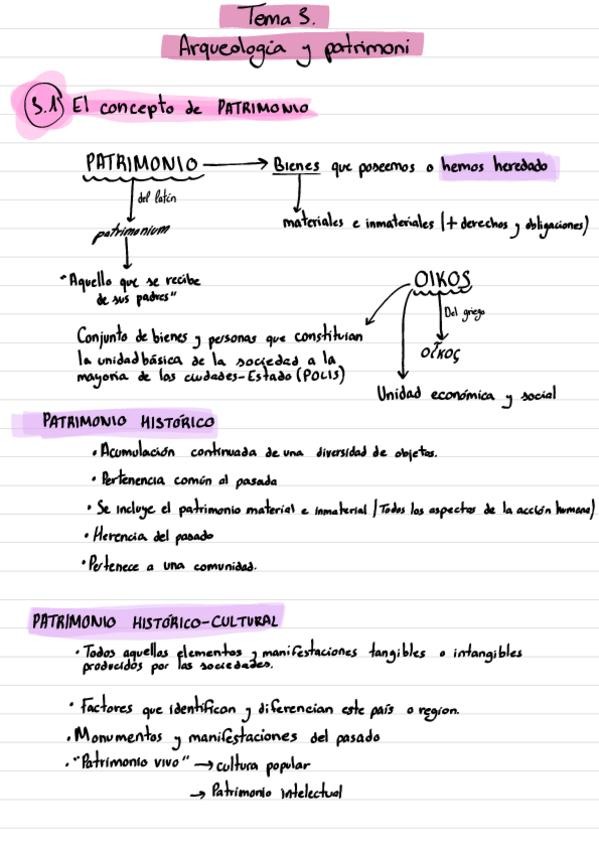 Tema 3.
Arqueologia y patrimoni
3.1 El concepto de PATRIMONIO
PATRIMONIO → Bienes que poseemos o hemos heredado
del latín
materiales e inmateriales (+ derechos y obligaciones)
patrimonium
"Aquello que se recibe
de sus padres"
OIKOS
Del griego
οἶκος
Conjunto de bienes y personas que constituian
la unidad básica de la sociedad a la
mayoria de las ciudades-Estado (POLIS)
Unidad económica y social
PATRIMONIO HISTÓRICO
• Acumulación continuada de una diversidad de objetos.
• Pertenencia común al pasada
• Se incluye el patrimonio material e inmaterial (Todos los aspectos de la acción humana)
• Herencia del pasado
• Pertenece a una comunidad.
PATRIMONIO HISTÓRICO-CULTURAL
• Todos aquellas elementos y manifestaciones tangibles o intangibles
producidos por las sociedades.
• Factores que identifican y diferencian este país o region.
• Monumentos y manifestaciones del pasado
• "Patrimonio vivo" → cultura popular
→ Patrimonio intelectual